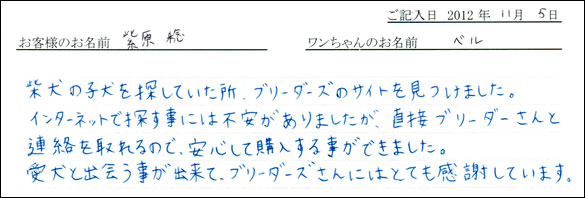 ご記入日 2012 年 11 月 5 日
お客様のお名前 紫原 稔 ワンちゃんのお名前 ベル
柴犬の子犬を探していた所、ブリーダーズのサイトを見つけました。
インターネットで探す事には不安がありましたが、直接ブリーダーさんと
連絡を取れるので、安心して購入する事ができました。
愛犬と出会う事が出来て、ブリーダーズさんにはとても感謝しています。